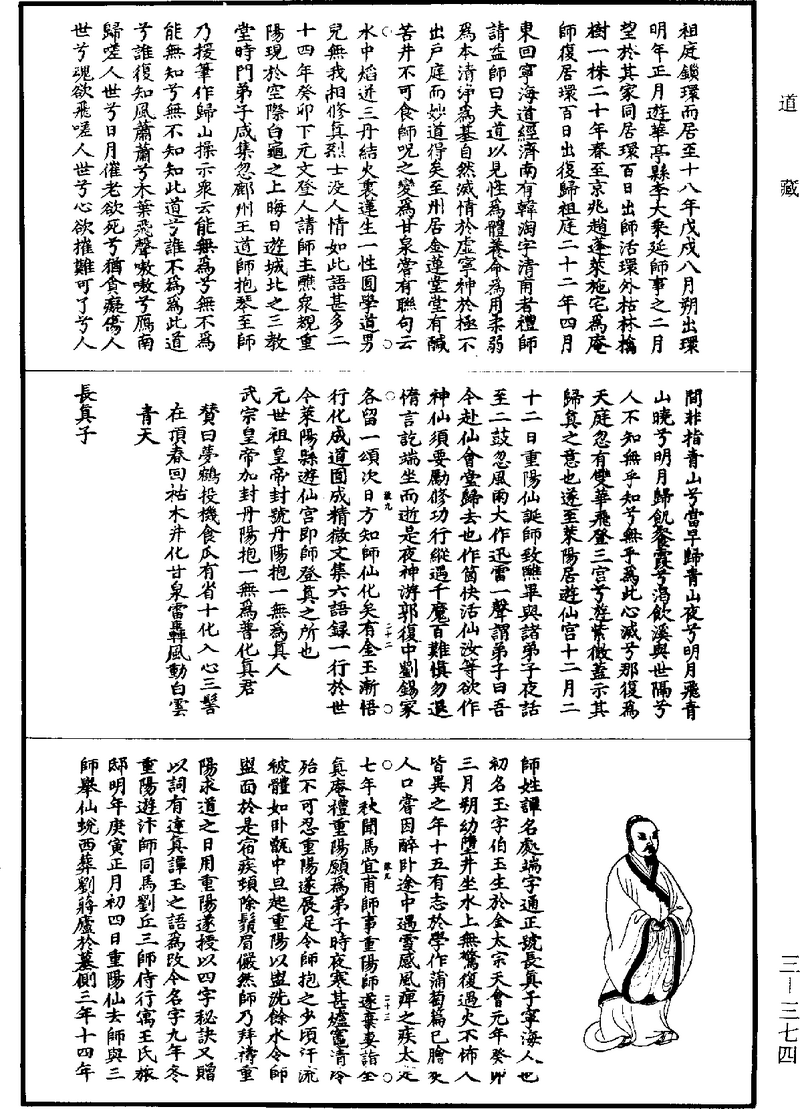 道藏
祖庭鎖環而居至十八年戊戌八月朔出環
明年正月遊華亭縣李大乘延師事之二月
望於其家同居環百日出師活環外枯林檎
樹一株二十年春至京兆趙蓬萊施宅為庵
師復居環百日出復歸祖庭二十二年四月
東回寧海道經濟南有韓淘字清甫者禮師
請益師曰夫道以見性為體養命為用柔弱
為本清淨為基自然滅情於虛寧神於極不
出戶庭而妙道得矣至州居金蓮堂堂有醎
苦井不可食師呪之變為甘泉嘗有聯句云
水中焰迸三丹結火裏蓮生一性圓學道男
兒無我相修真烈士沒人情如此語甚多二
十四年癸卯下元文登人請師主醮衆觀重
陽現於空際白龜之上晦日遊城北之三教
堂時門弟子咸集忽鄜州王道師抱琴至師
乃援筆作歸山操示衆云能無為兮無不為
能無知兮無不知知此道兮誰不為為此道
兮誰復知風蕭蕭兮木葉飛聲嗷嗷兮鴈南
歸嗟人世兮日月催老欲死兮猶貪癡傷人
世兮魂欲飛嗟人世兮心欲摧難可了兮人
間非指青山兮當早歸青山夜兮明月飛青
山曉兮明月歸飢餐霞兮渴飲溪與世隔兮
人不知無乎知兮無乎為此心滅兮那復為
天庭忽有雙華飛登三宮兮遊紫微蓋示其
歸真之意也遂至萊陽居遊仙宮十二月二
十二日重陽仙誕師致醮畢與諸弟子夜話
至二鼓忽風雨大作迅雷一聲謂弟子曰吾
今赴仙會堂歸去也作箇快活仙汝等欲作
神仙須要勵修功行縱遇千魔百難慎勿退
惰言訖端坐而逝是夜神游郭復中劉錫家
各留一頌次日方知師仙化矣有金玉漸悟
行化成道圓成精微文集六語録一行於世
今萊陽縣遊仙宮即師登真之所也
元世祖皇帝封號丹陽抱一無為真人
武宗皇帝加封丹陽抱一無為普化真君
贊曰夢鶴投機食瓜有省十化入心三髻
在頂春回枯木井化甘泉雷轟風動白雲
青天
長真子
師姓譚名處端字通正號長真子寧海人也
初名玉字伯玉生於金太宗天會元年癸卯
三月朔幼墮井坐水上無驚復遇火不怖人
皆異之年十五有志於學作蒲萄篇已膾炙
人口嘗因醉卧途中遇雪感風痺之疾太定
七年秋聞馬宜甫師事重陽師遂棄妻詣全
真庵禮重陽願為弟子時夜寒甚爐竈清冷
殆不可忍重陽遂展足令師抱之少頃汗流
被體如卧甑中旦起重陽以盥洗餘水令師
盥面於是宿疾頓除鬚眉儼然師乃拜禱重
陽求道之日用重陽遂授以四字秘訣又贈
以詞有達真譚玉之語為改今名字九年冬
重陽遊汴師同馬劉丘三師侍行寓王氏旅
邸明年庚寅正月初四日重陽仙去師與三
師舉仙蛻西葬劉蔣廬於墓側三年十四年
三—三七四